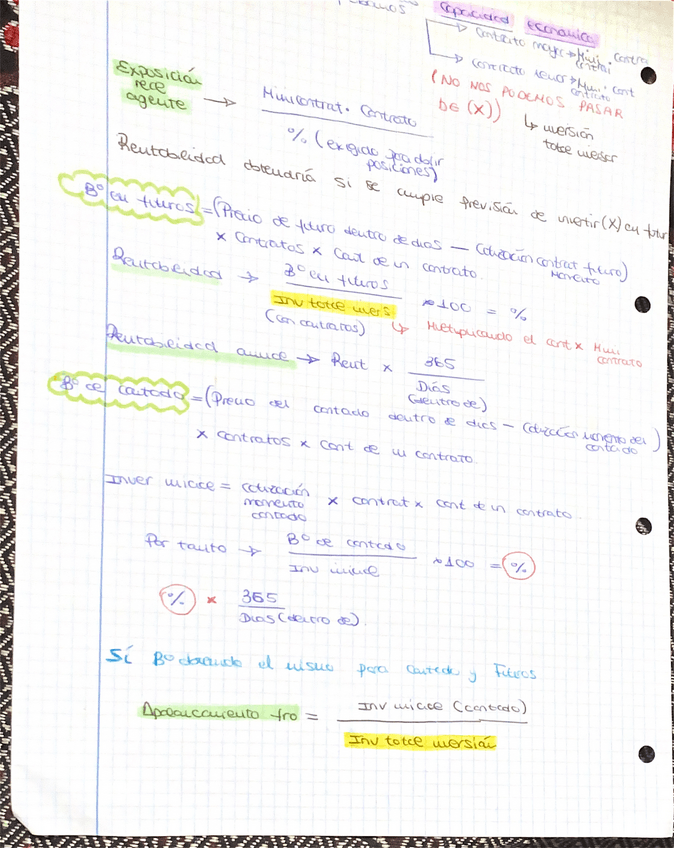 Capacidad económica
→ contrato mayor → Mini. contra
→ contrato menor → Mini. cont
contrato
(NO NOS PODEMOS PASAR
DE (X))
↳ inversión
total inversor
Exposición
real
agente → Minicontrat. Contrato
% (exigido para abrir
posiciones)
Rentabilidad obtendría si se cumple previsión de invertir (X) en futur
Bº en futuros = (Precio de futuro dentro de dias — Cotización contrat futuro)
momento
× contratos × Cant de un contrato.
Rentabilidad → Bº en futuros × 100 = %
Inv total invers
(con contratos) ↳ Multiplicando el cont × Mini
contrato
Rentabilidad anual → Rent × 365
Dias
(dentro de)
Bº al contado = (Precio del contado dentro de dias — Cotización momento del)
contado
× contratos × Cant de un contrato.
Inver inicial = cotización × contrat × cant de un contrato.
momento
contado
Por tanto → Bº al contado × 100 = %
Inv inicial
% × 365
Dias (dentro de).
Sí Bº el mismo para Contado y Futuros
Apalancamiento fro = Inv inicial (contado)
Inv total inversión